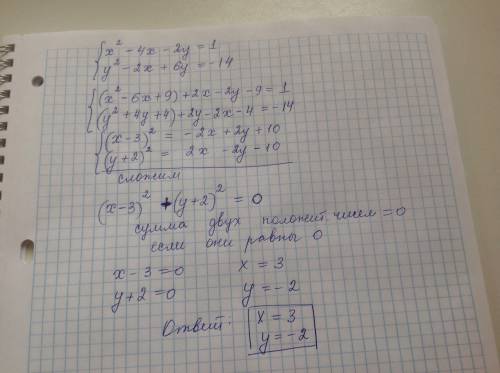 x² - 4x - 2y = 1
y² - 2x + 6y = -14
(x² - 6x + 9) + 2x - 2y - 9 = 1
(y² + 4y + 4) + 2y - 2x - 4 = -14
(x-3)² = -2x + 2y + 10
(y+2)² = 2x - 2y - 10
сложим
(x-3)² + (y+2)² = 0
сумма двух положит. чисел = 0
если они равны 0
x - 3 = 0 x = 3
y + 2 = 0 y = -2
Ответ: x = 3
y = -2